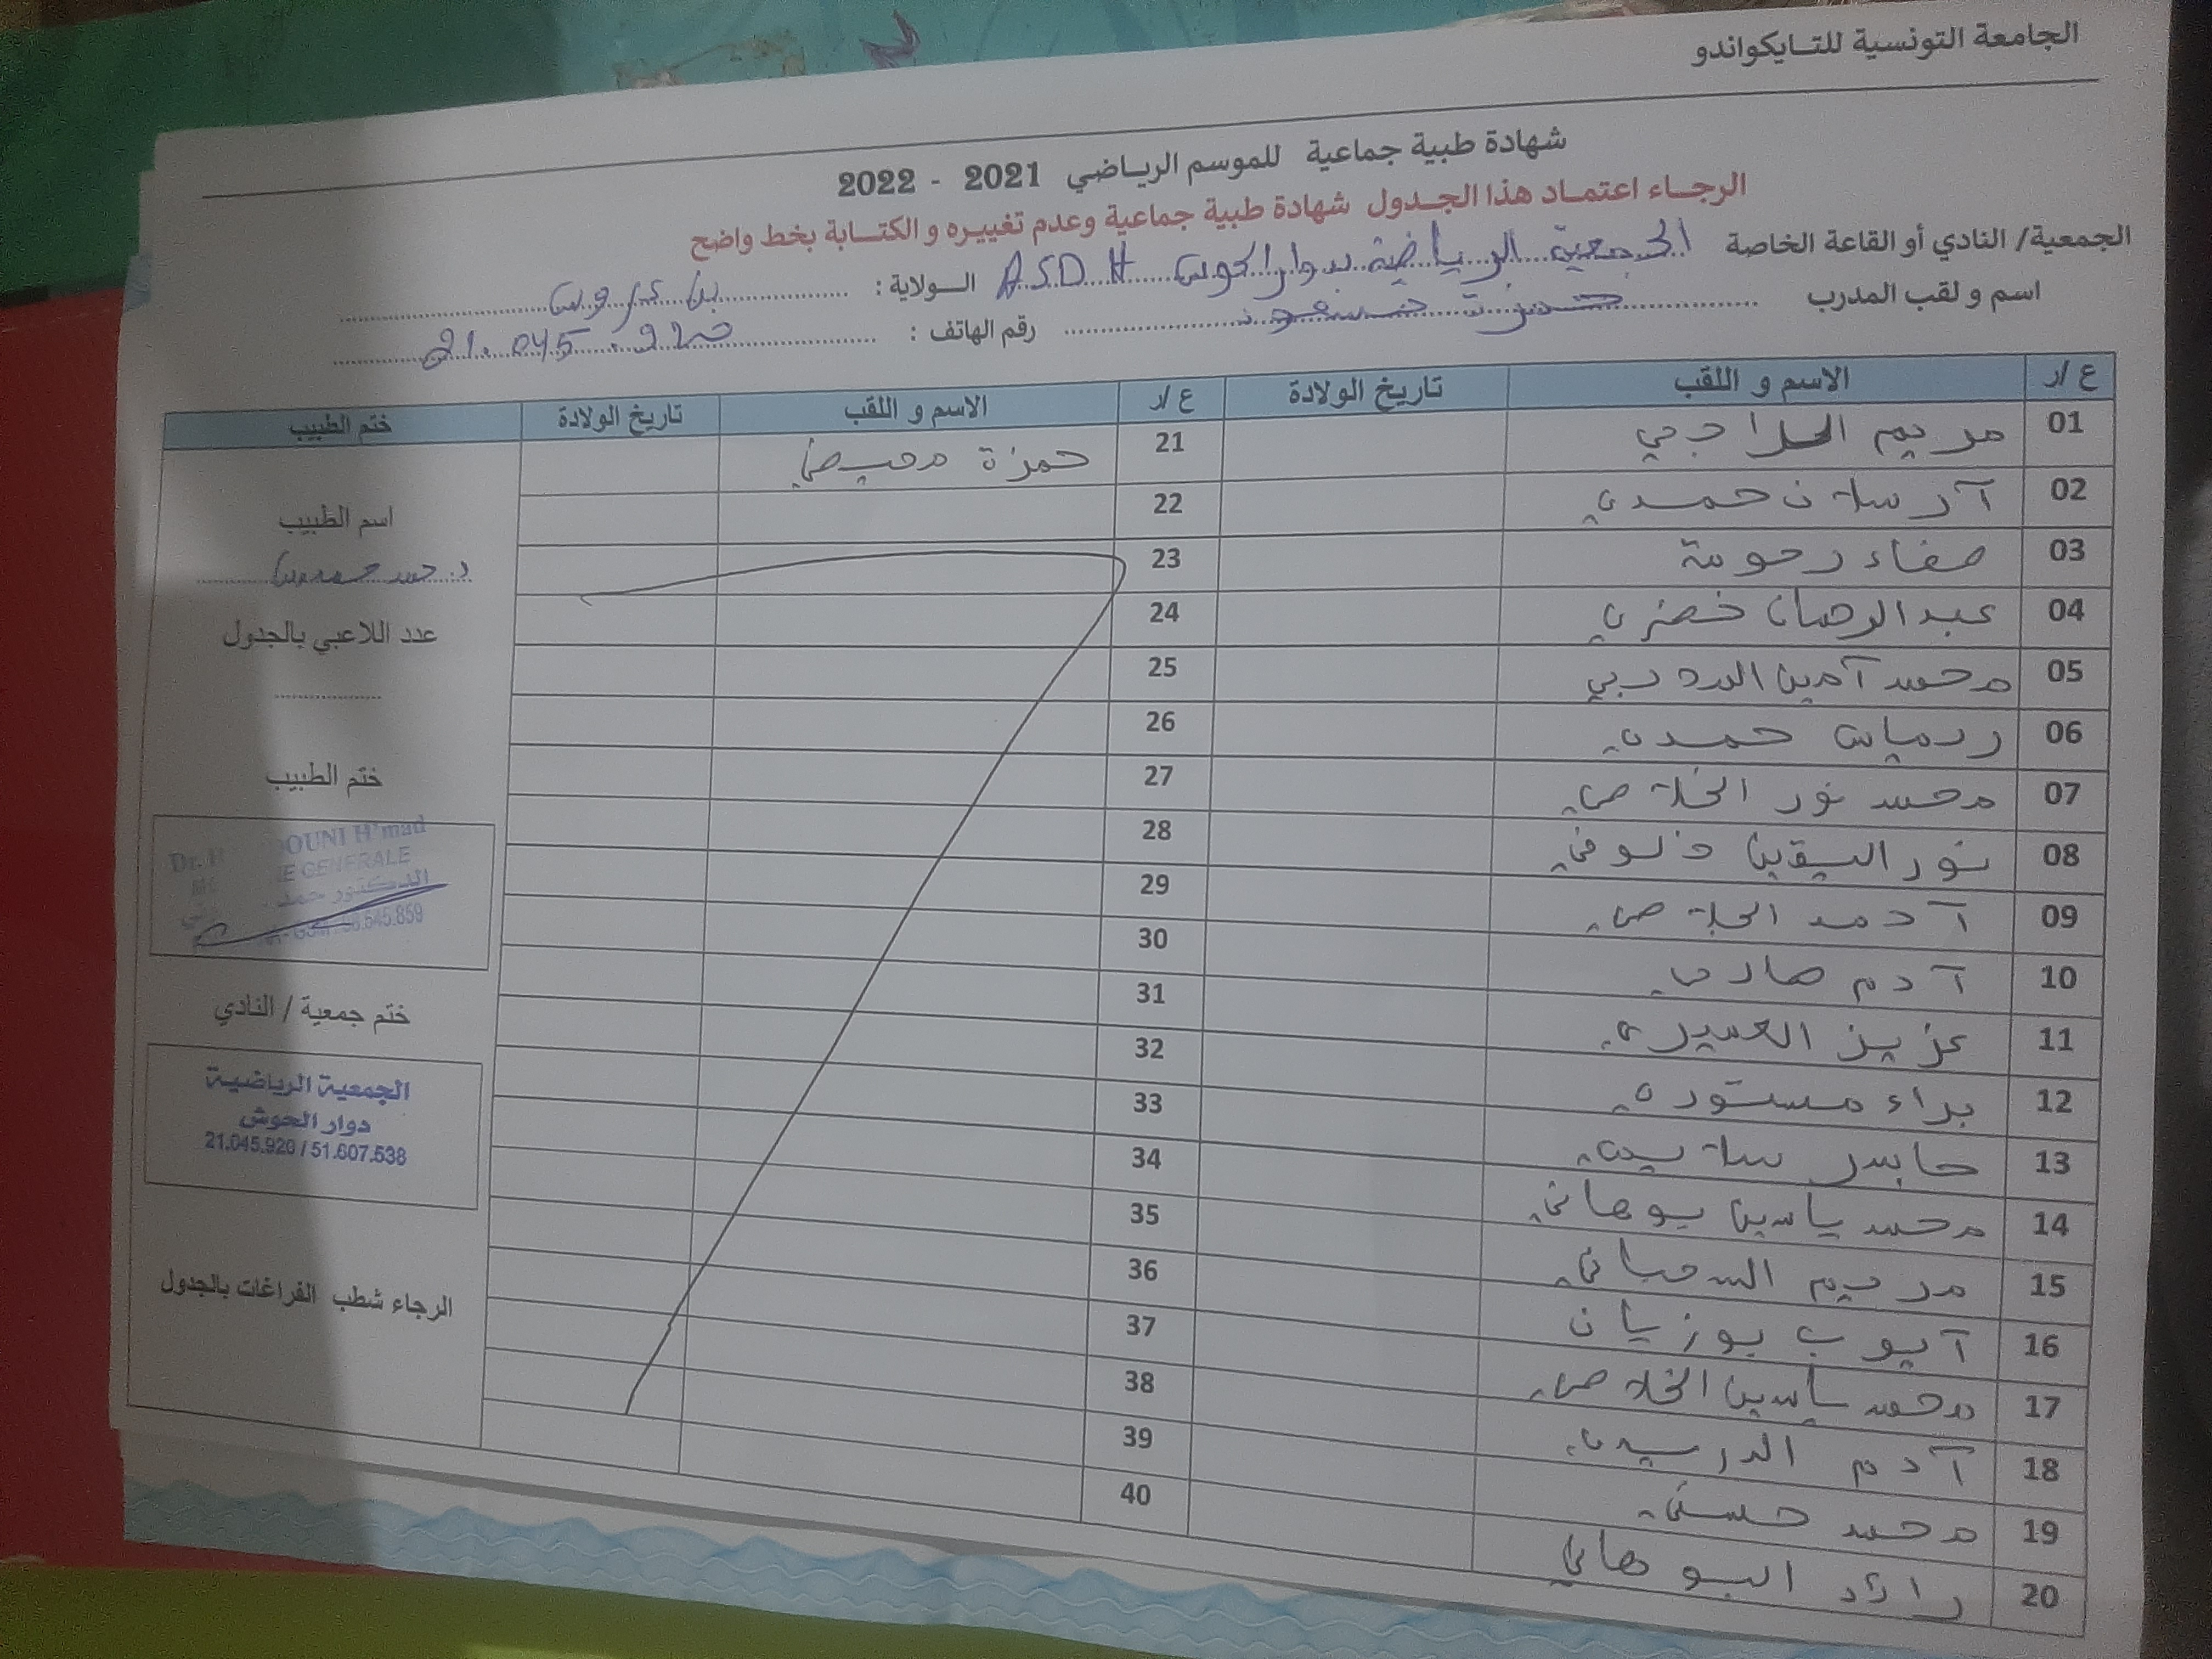 الجامعة التونسية للتايكواندو
شهادة طبية جماعية للموسم الرياضي 2021 - 2022
الرجاء اعتماد هذا الجدول شهادة طبية جماعية وعدم تغييره و الكتابة بخط واضح
الجمعية/ النادي أو القاعة الخاصة الجمعية الرياضية بدوار الحوش A.S.D.H الولاية : بن عروس
اسم و لقب المدرب حمزة مسعود رقم الهاتف : 21.045.920
ع /ر الاسم و اللقب تاريخ الولادة ع /ر الاسم و اللقب تاريخ الولادة ختم الطبيب
01 مريم الحلاجي
02 آرسلان حمدي
03 صفاء رحومة
04 عبد الرحمان خضري
05 محمد آمين
06 حمدي
07 محمد نور الخلاصي
08 نور اليقين
09
10 آدم
11 عزيز العميري
12 براء مستوري
13
14 محمد ياسين بوهاني
15 مريم
16 آيوب بوزيان
17 محمد ياسين الخلاصي
18 آدم الدريسي
19 محمد حسني
20 رائد البوهاني
21 حمزة
22
23
24
25
26
27
28
29
30
31
32
33
34
35
36
37
38
39
40
اسم الطبيب
د.
عدد اللاعبي بالجدول
ختم الطبيب
Dr. OUNI H'mad
E GENERALE
الدكتور حمد
545.859
ختم جمعية / النادي
الجمعية الرياضية
دوار الحوش
21.045.920 / 51.607.538
الرجاء شطب الفراغات بالجدول